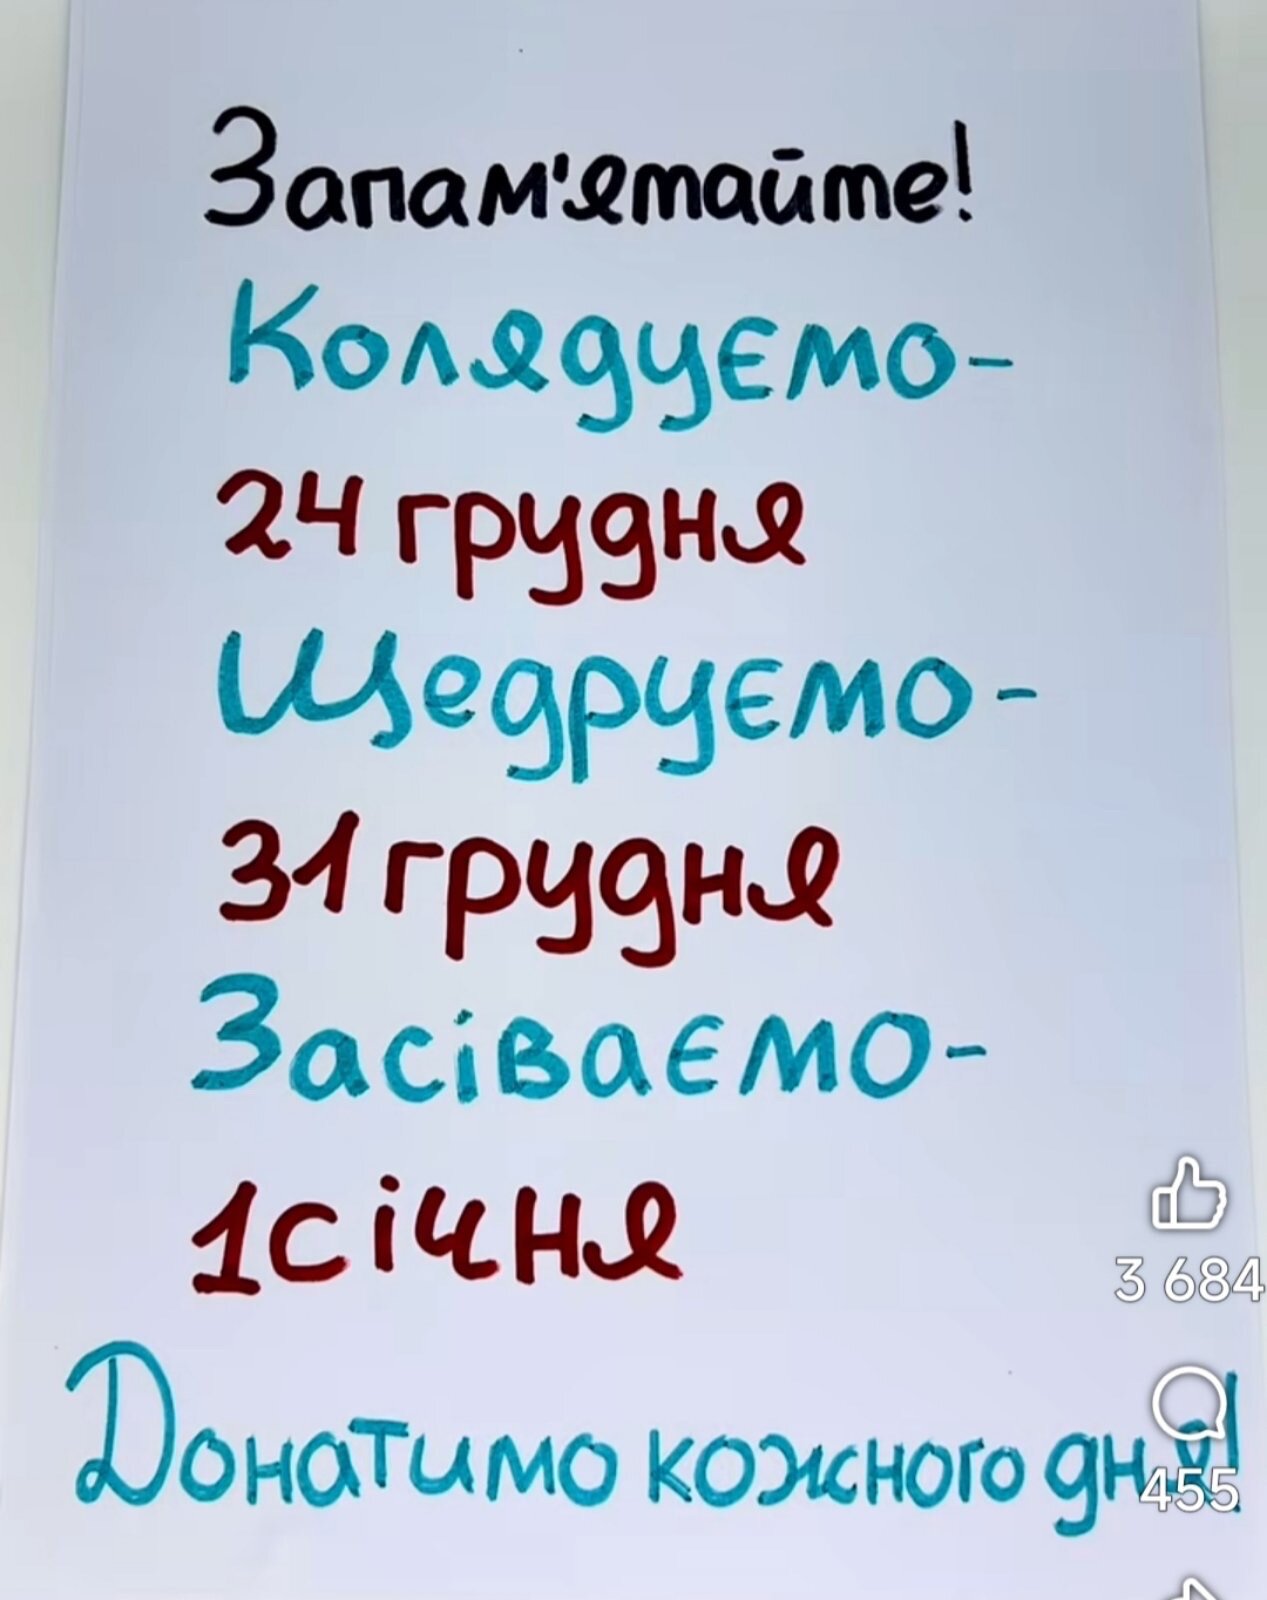 Запам'ятайте!
Колядуємо-
24 грудня
Щедруємо-
31 грудня
Засіваємо-
1 січня
Донатимо кожного дня!
3 684
455